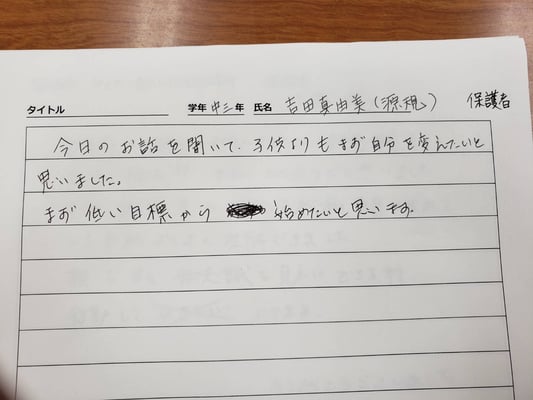 タイトル 学年 中三 年 氏名 吉田真由美(源規) 保護者
今日のお話を聞いて、子供よりもまず自分を変えたいと
思いました。
まず低い目標から 始めたいと思います。